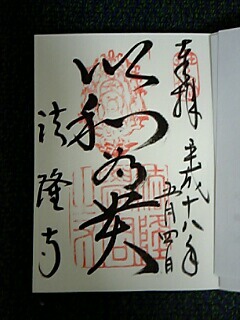 奉拝
平成十八年
五月四日
以和為貴
法隆寺